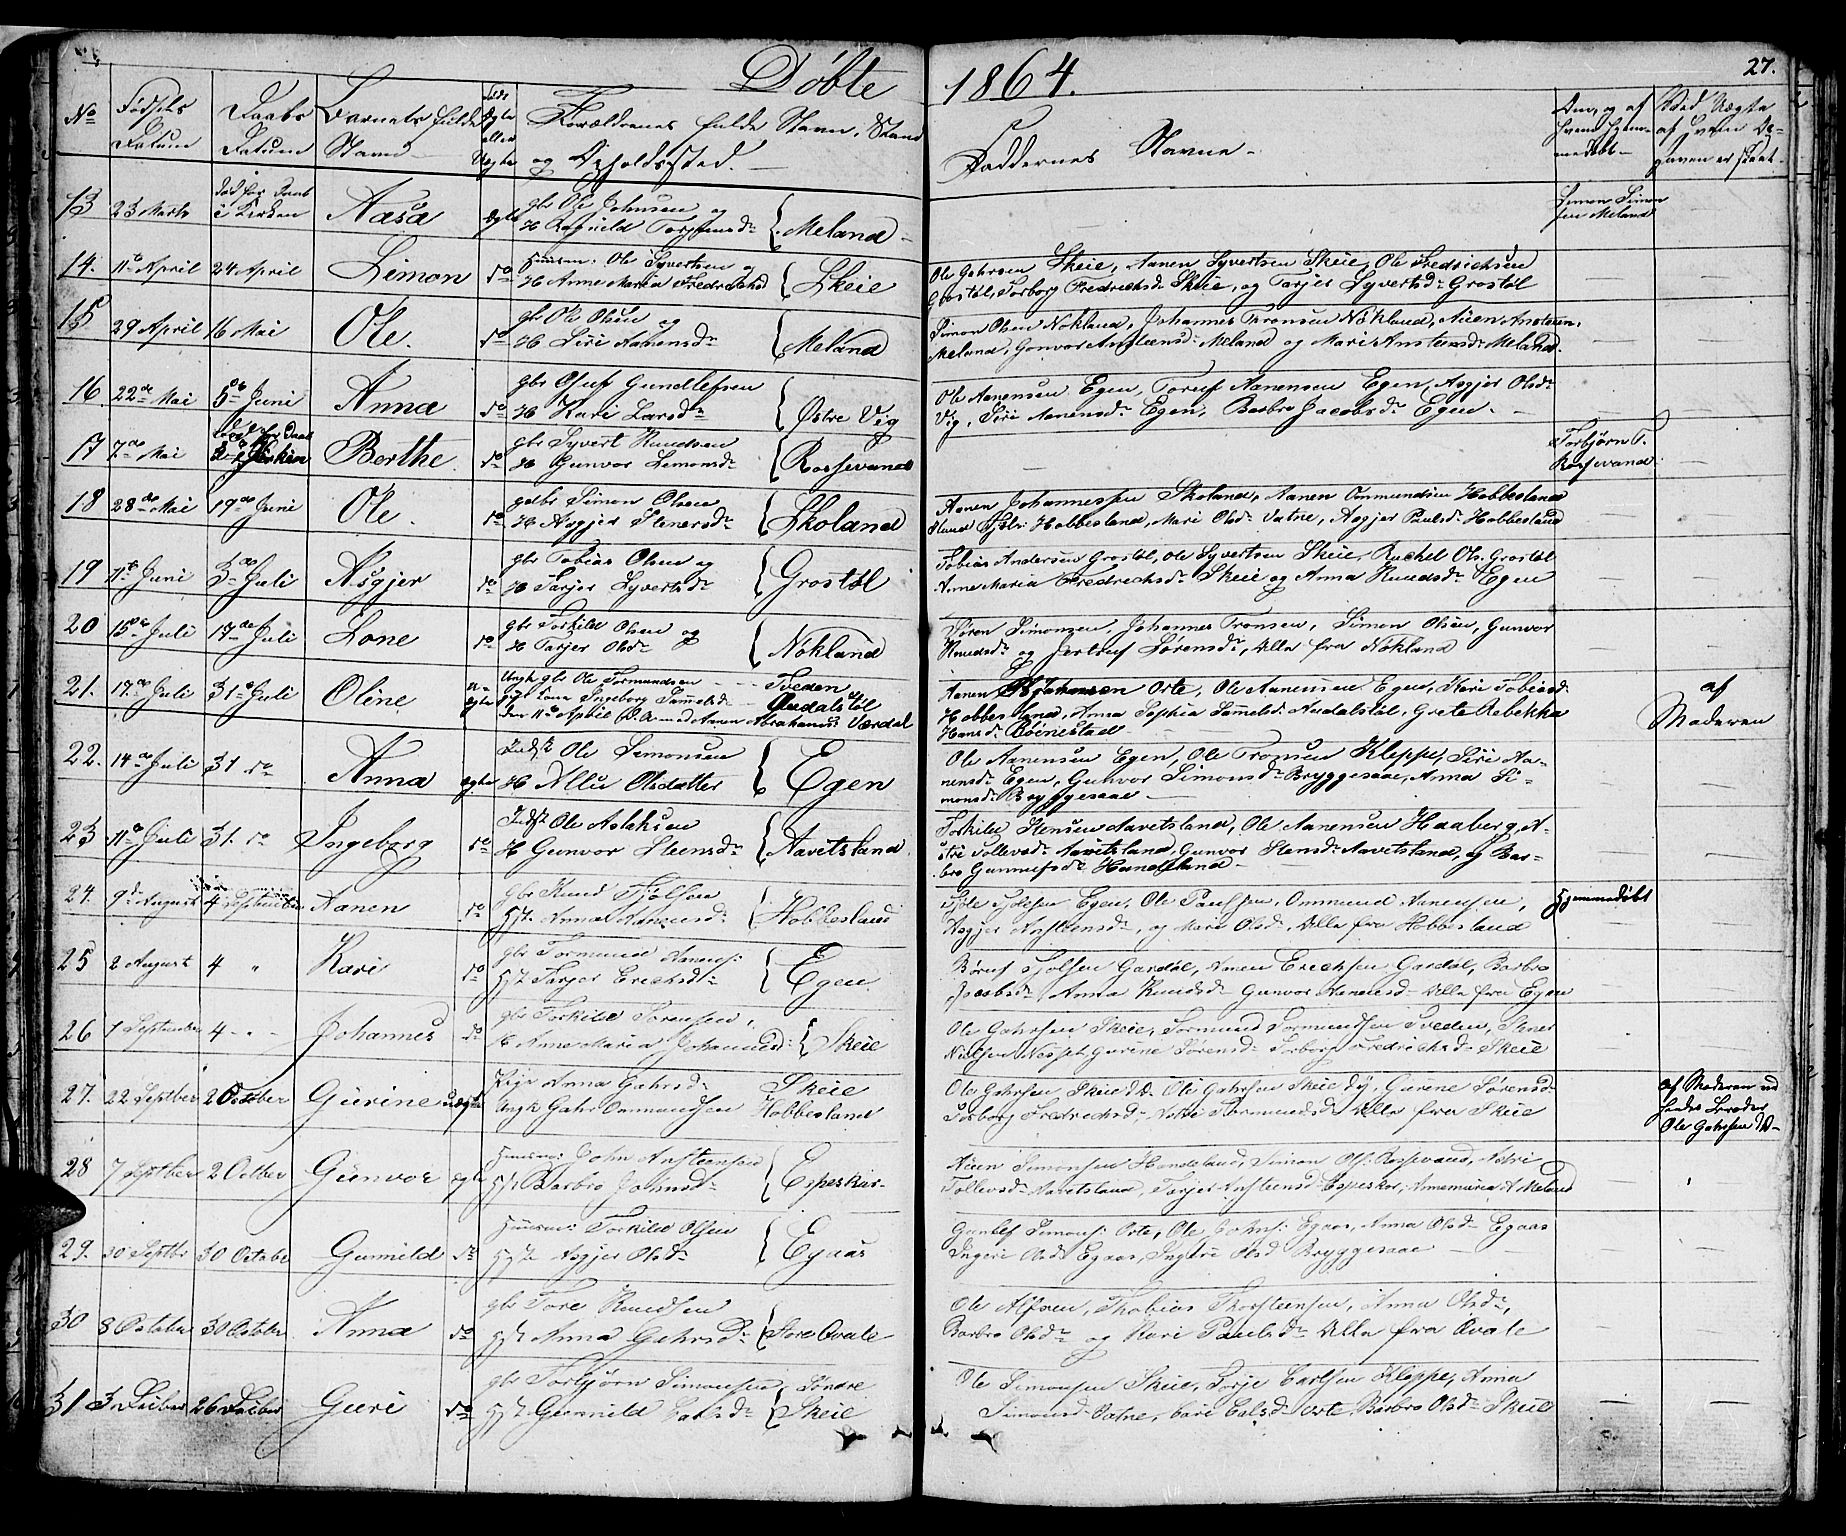 Døbte 1864. 27.
No Fødsels Datum Daabs Datum Barnets fulde Navn Ægte eller Uægte Forældrenes fulde Navn, Stand og Opholdssted. Faddernes Navne Om, og af hvem hjemmedøbt Ved Uægte af hvem Opgaven er skeet
13 23 Marts død før Daab i Kirken Aasa ægte gbr Ole Johnsen og
H Ragnild Torjusd: Meland Simon Simonsen Meland
14. 11te April 24 April Simon do Huusm: Ole Syvertsen og
H Anne Maria Fredrichsd Skeie
Ole Gahrsen Skeie, Aanen Syvertsen Skeie, Ole Fredrichsen
Grostøl, Torborg Fredrichsd: Skeie, og Tarjer Syvertsd: Grostøl
15 29 April 16 Mai Ole. do gbr Ole Olsen og
H Siri Aanensd: Meland
Simon Olsen Nokland, Johannes Tronsen Nokland, Aüen Anstensen
Meland, Gonvor Anstensd: Meland og Mari Anstensd: Meland.
16. 22de Mai 5te Juni Anna do gbr Osuf Gundlefsen
H Kari Larsd: Østre Vig
Ole Aanensen Egen, Toruf Aanensen Egen, Asgjer Olsd:
Vig, Siri Aanensd: Egen, Barbro Jacobsd: Egen.
17 7de Mai Død før Daab i Kirken Berthe do gbr Syvert Knudsen
H Gunvor Semonsd: Rossevand Torbjørn T. Rossevand
18 28de Mai 19de Juni Ole. do gdbr Simon Olsen
H Asgjer Stenersd: Skoland
Aanen Johannessen Skoland, Aanen Ommundsen Hobbesland
Hobbesland, Mari Olsd: Vatne, Asgjer Paulsd: Hobbesland
19 11te Juni 3de Juli Asgjer do gbr Tobias Olsen og
H Tarjer Syvertsd: Grostøl
Tobias Andersen Grostøl, Ole Syvertsen Skeie, Rachel Ols: Grostøl
Anne Maria Fredrechsd: Skeie og Anna Knudsd: Egen
20 15de Juli 17de Juli Lone do gbr Torkild Olsen og
H Tarjer Olsd: Nokland
Søren Simonsen, Johannes Tronsen, Simon Olsen, Gunvor
Knudsd: og Jertruf Sørensd:, Alle fra Nokland
21. 17de Juli 31te Juli Oline uægte Ungk gbr Ole Tormundsen Tveden
pige Lara Ingeborg Samuelsd: Audalstøl
den 11te April Aanen Abrahamss: Værdal
Aanen Johansen Orte, Ole Aanensen Egen, Kari Tobiasd:
Hobbesland, Anna Sophia Samuelsd: Audalstøl, Grete Rebekka
Hansd: Bønestad af Moderen
22. 14de Juli 31 do Anna ægte Inds: Ole Simonsen
H Allu Olsdatter Egen
Ole Aanensen Egen, Ole Tronsen Kleppe, Siri Aanensd:
Egen, Gunvor Simonsd: Bryggesaae, Anna Simonsd:
Bryggesaae
23 11te Juli 31. do Ingeborg do Inds: Ole Aslaksen
H Gunvor Steensd: Aavetsland
Torkild Stensen Aavetsland, Ole Aanensen Haaberg, Astri
Tollevsd: Aavetsland, Gunvor Stensd: Aavetsland, og Barbro
Gunnufsd: Handeland
24. 9de August 4 September Aanen do gbr Knud Tjølsen
H. Anna Aanensd: Hobbesland
Tjøle Tjølsen Egen, Ole Paulsen, Ommund Aanensen,
Asgjer Anstensd:, og Mari Olsd:, Alle fra Hobbesland Hjemmedøbt
25 2 August 4 " Kari do gbr Tormund Aanens:
H. Tarjer Erichsd: Egen
Børuf Tjølsen Gardøl, Aanen Erichsen Gardøl, Barbro
Jacobsd: Anna Knudsd: Gunvor Aanensd: Alle fra Egen
26 1 September 4 - " - Johannes do gbr Torkild Sørensen,
H Anne Maria Johannesd: Skeie
Ole Gahrsen Skeie, Tormund Tormundsen Tveden, Stener
Nielsen Nesset, Gurine Sørensd: Torborg Fredrichsd: Skeie
27. 22 Septber 2 October Gurine uægte Pige Anna Gahrsd: Skeie
Ungk Gahr Ommundsen Hobbesland
Ole Gahrsen Skeie d.Æ. Ole Gahrsen Skeie d.y. Gurene Sørensd:
Torborg Fredrichsd: Tormundsd: Alle fra Skeie af Moderen ved hendes Broder Ole Gahrsen d.Æ.
28 7 Septber 2 Octber Gunvor ægte Huusm: John Anstensen
H. Barbro Johnsd: Espeskar
Aüen Simonsen Handeland, Simon Ols: Rossevand, Astri
Tollevsd: Aavetsland, Tarjer Anstensd: Espeskar, Annemaria A. Meland
29. 30 Septbr 30 October Gunnild do Huusm: Torkild Olsen
H. Asgjer Olsd: Egaas
Gunlef Simons: Orte, Ole Johns: Egaas, Anna Olsd: Egaas
Ingeri Olsd: Egaas, Ingeri Olsd Bryggesaae
30 8 October 30 October Anna do gbr Tore Knudsen
H. Anna Gahrsd: Store Ovale
Ole Alfsen, Thobias Thorsteensen, Anna Olsd:,
Barbro Olsd: og Kari Paulsd: Alle fra Ovale
31 3 Decber 26 Decber Guri do gbr Torbjørn Simonsen
H. Gunnild Carlsd: Søndre Skeie
Ole Simonsen Skeie, Torje Carlsen Kleppe, Anna
Simonsd: Vatne, Orte Barbro Olsd: Skeie